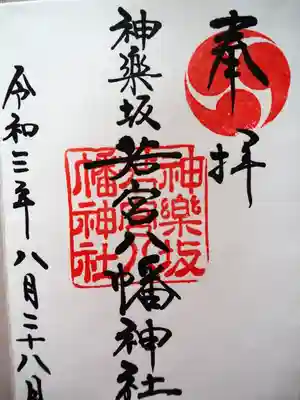 奉拝
神楽坂若宮八幡神社
神樂坂
若宮八
幡神社
令和三年八月二十八月